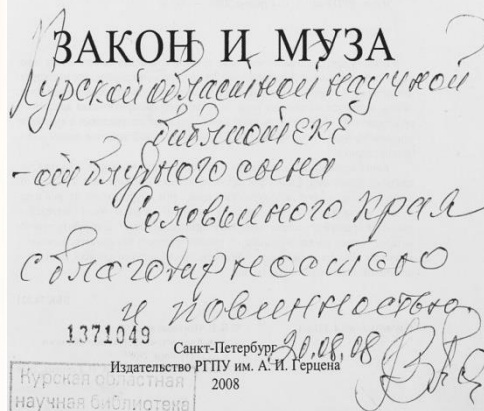 ЗАКОН И МУЗА
Курской областной научной
библиотеке
- от блудного сына
Соловьиного края
с благодарностью
и повинностью
1371049
20.08.08
Санкт-Петербург
Издательство РГПУ им. А. И. Герцена
2008
Курская областная
научная библиотека